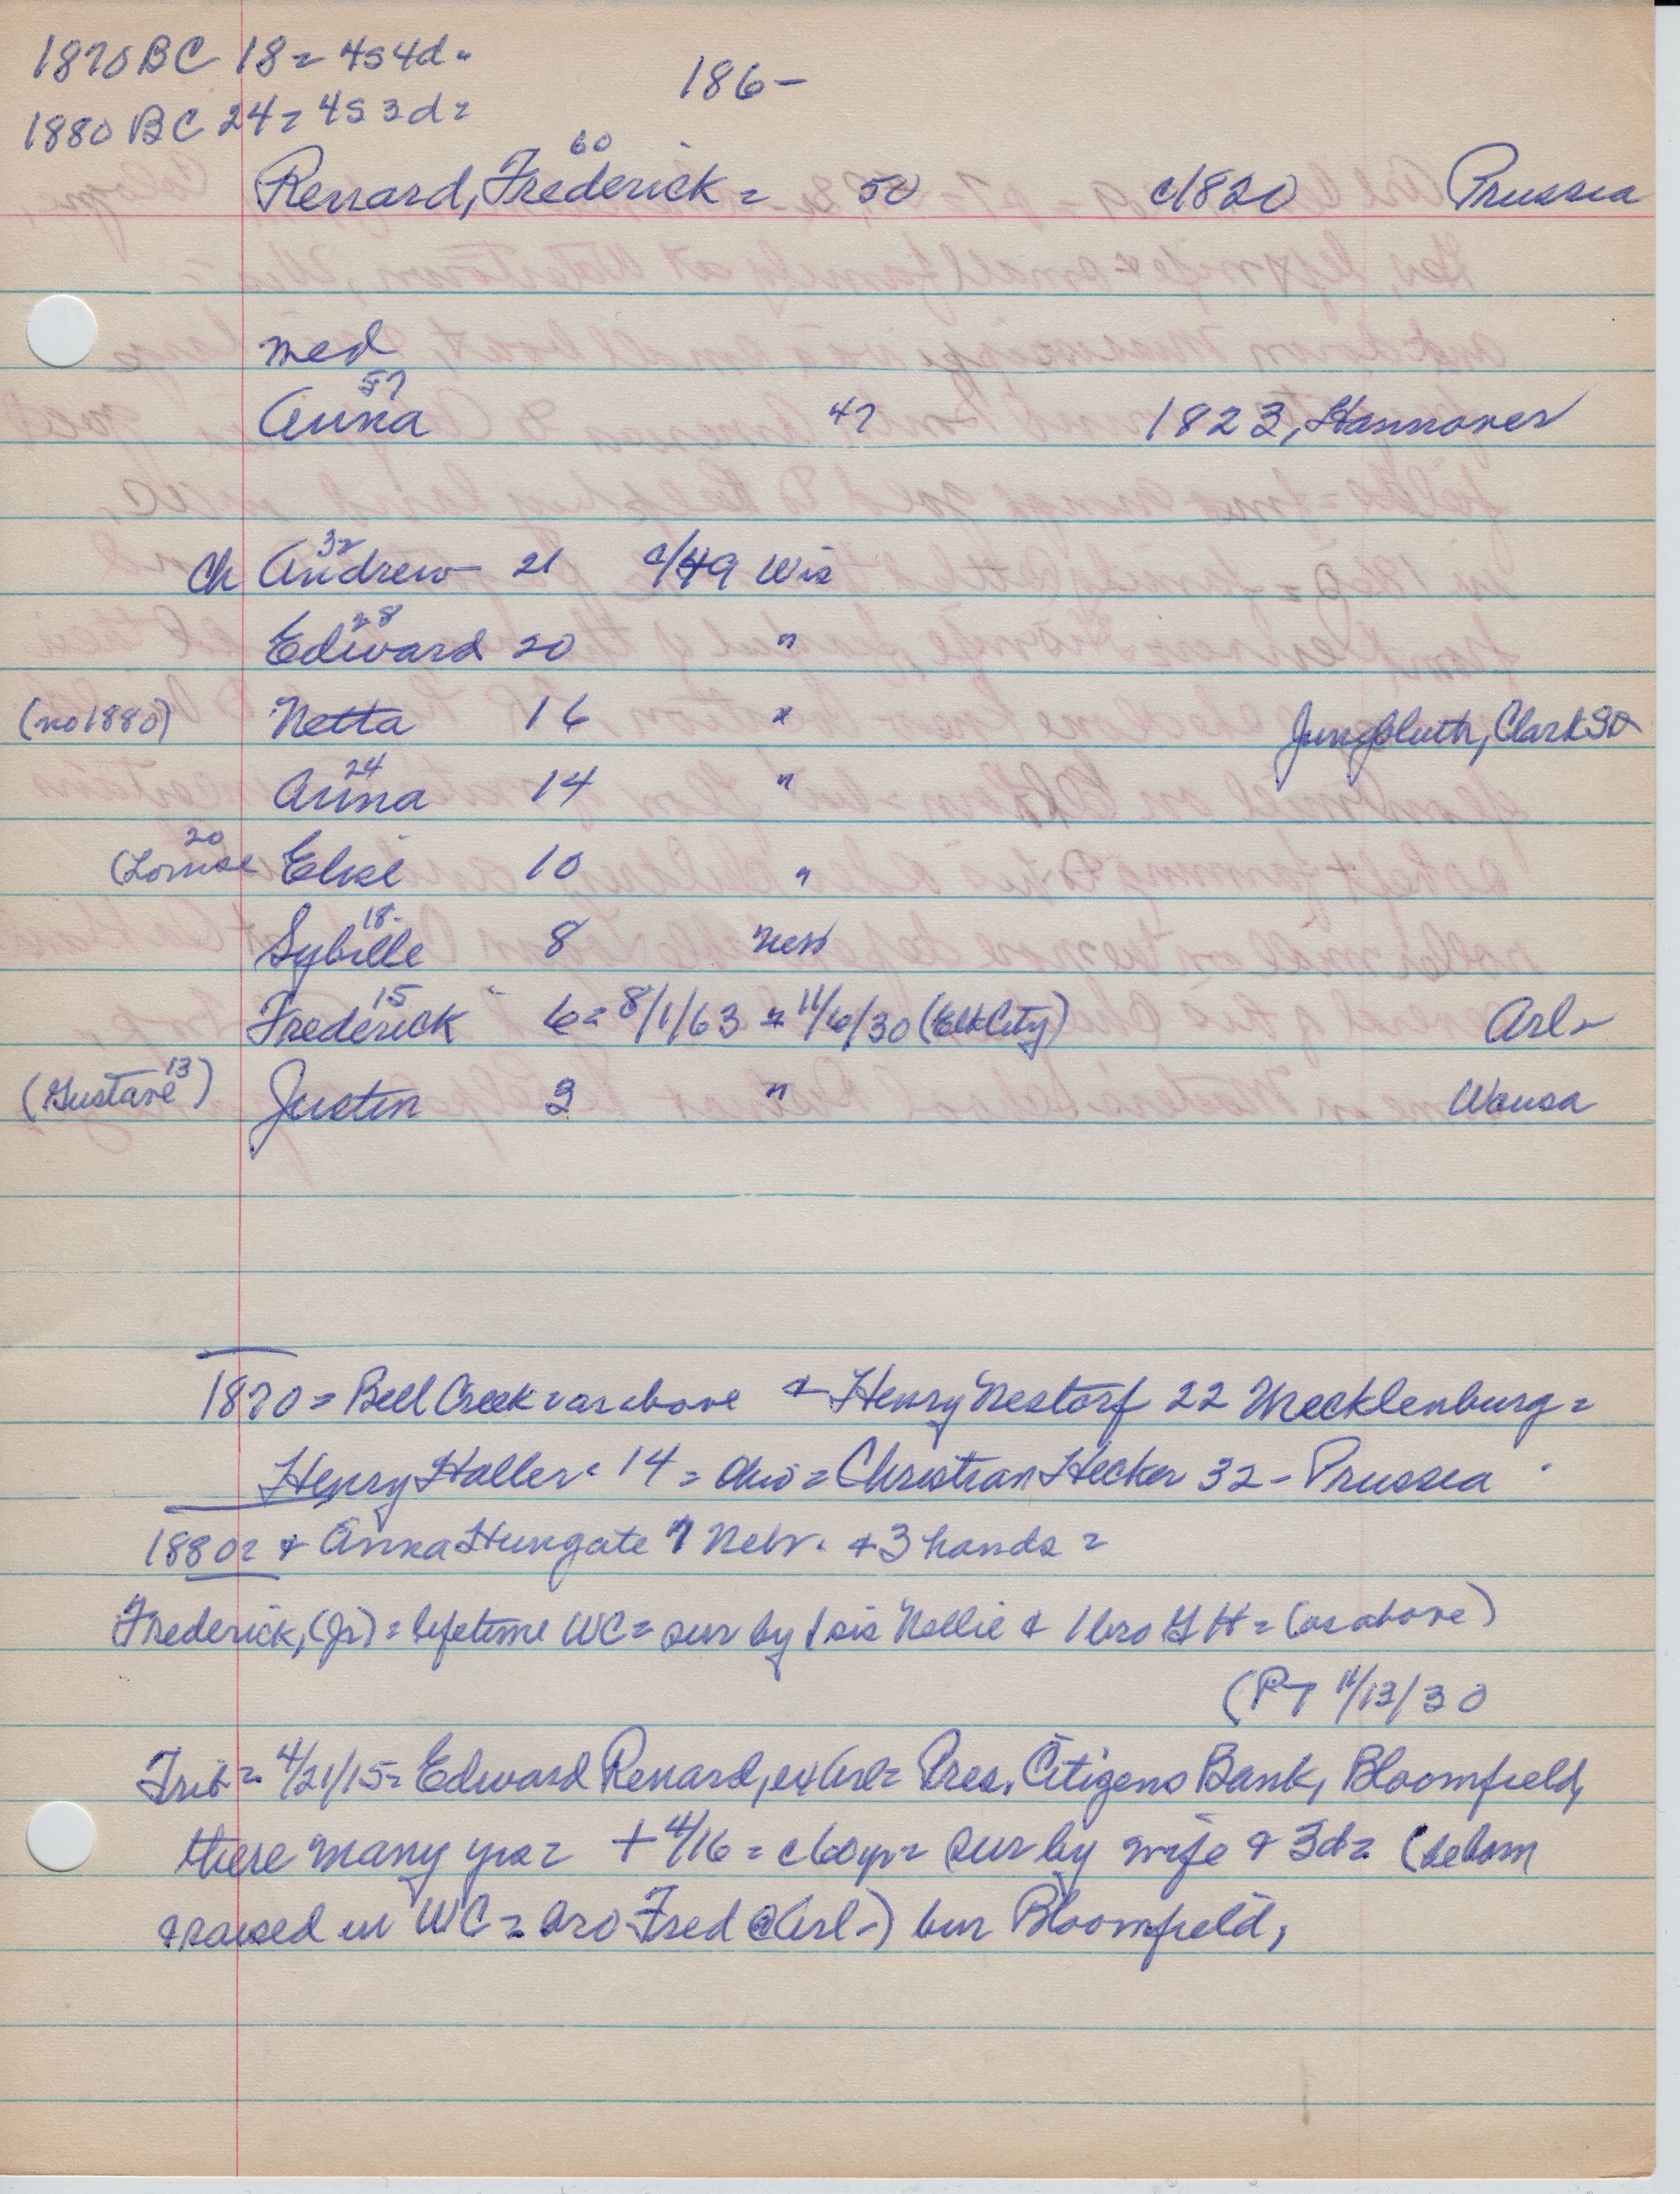 1870 BC 18 = 4s 4d =
186-
1880 BC 24 = 4s 3d =
60
Renard, Frederick = 50 c/1820 Prussia
med
57
Anna 47 1823, Hannover
32
Ch Andrew 21 c/49 Wis
28
Edward 20 "
(no 1880) Netta 16 " Jungbluth, Clark St
24
Anna 14 "
20
(Louise Elise 10 "
18-
Sybille 8 Nebr
15
Frederick 6 = 8/1/63 + 11/6/30 (Elk City) Arl-
13
(Gustave) Justin 3 " Wausa
1870 = Bell Creek = as above + Henry Nestorf 22 Mecklenburg =
Henry Haller = 14 = Ohio = Christian Hecker 32 - Prussia
1880 = + Anna Hungate 7 Nebr. + 3 hands =
Frederick, (Jr) = lifetime WC = sur by 1 sis Nellie & 1 bro G H = (as above)
(PT 11/13/30
Trib = 4/21/15 = Edward Renard, ex Arl = Pres. Citizens Bank, Bloomfield,
there many yrs = + 4/16 = c 60 yr = sur by wife & 3d = (he born
& raised in WC = bro Fred @ Arl-) bur Bloomfield,